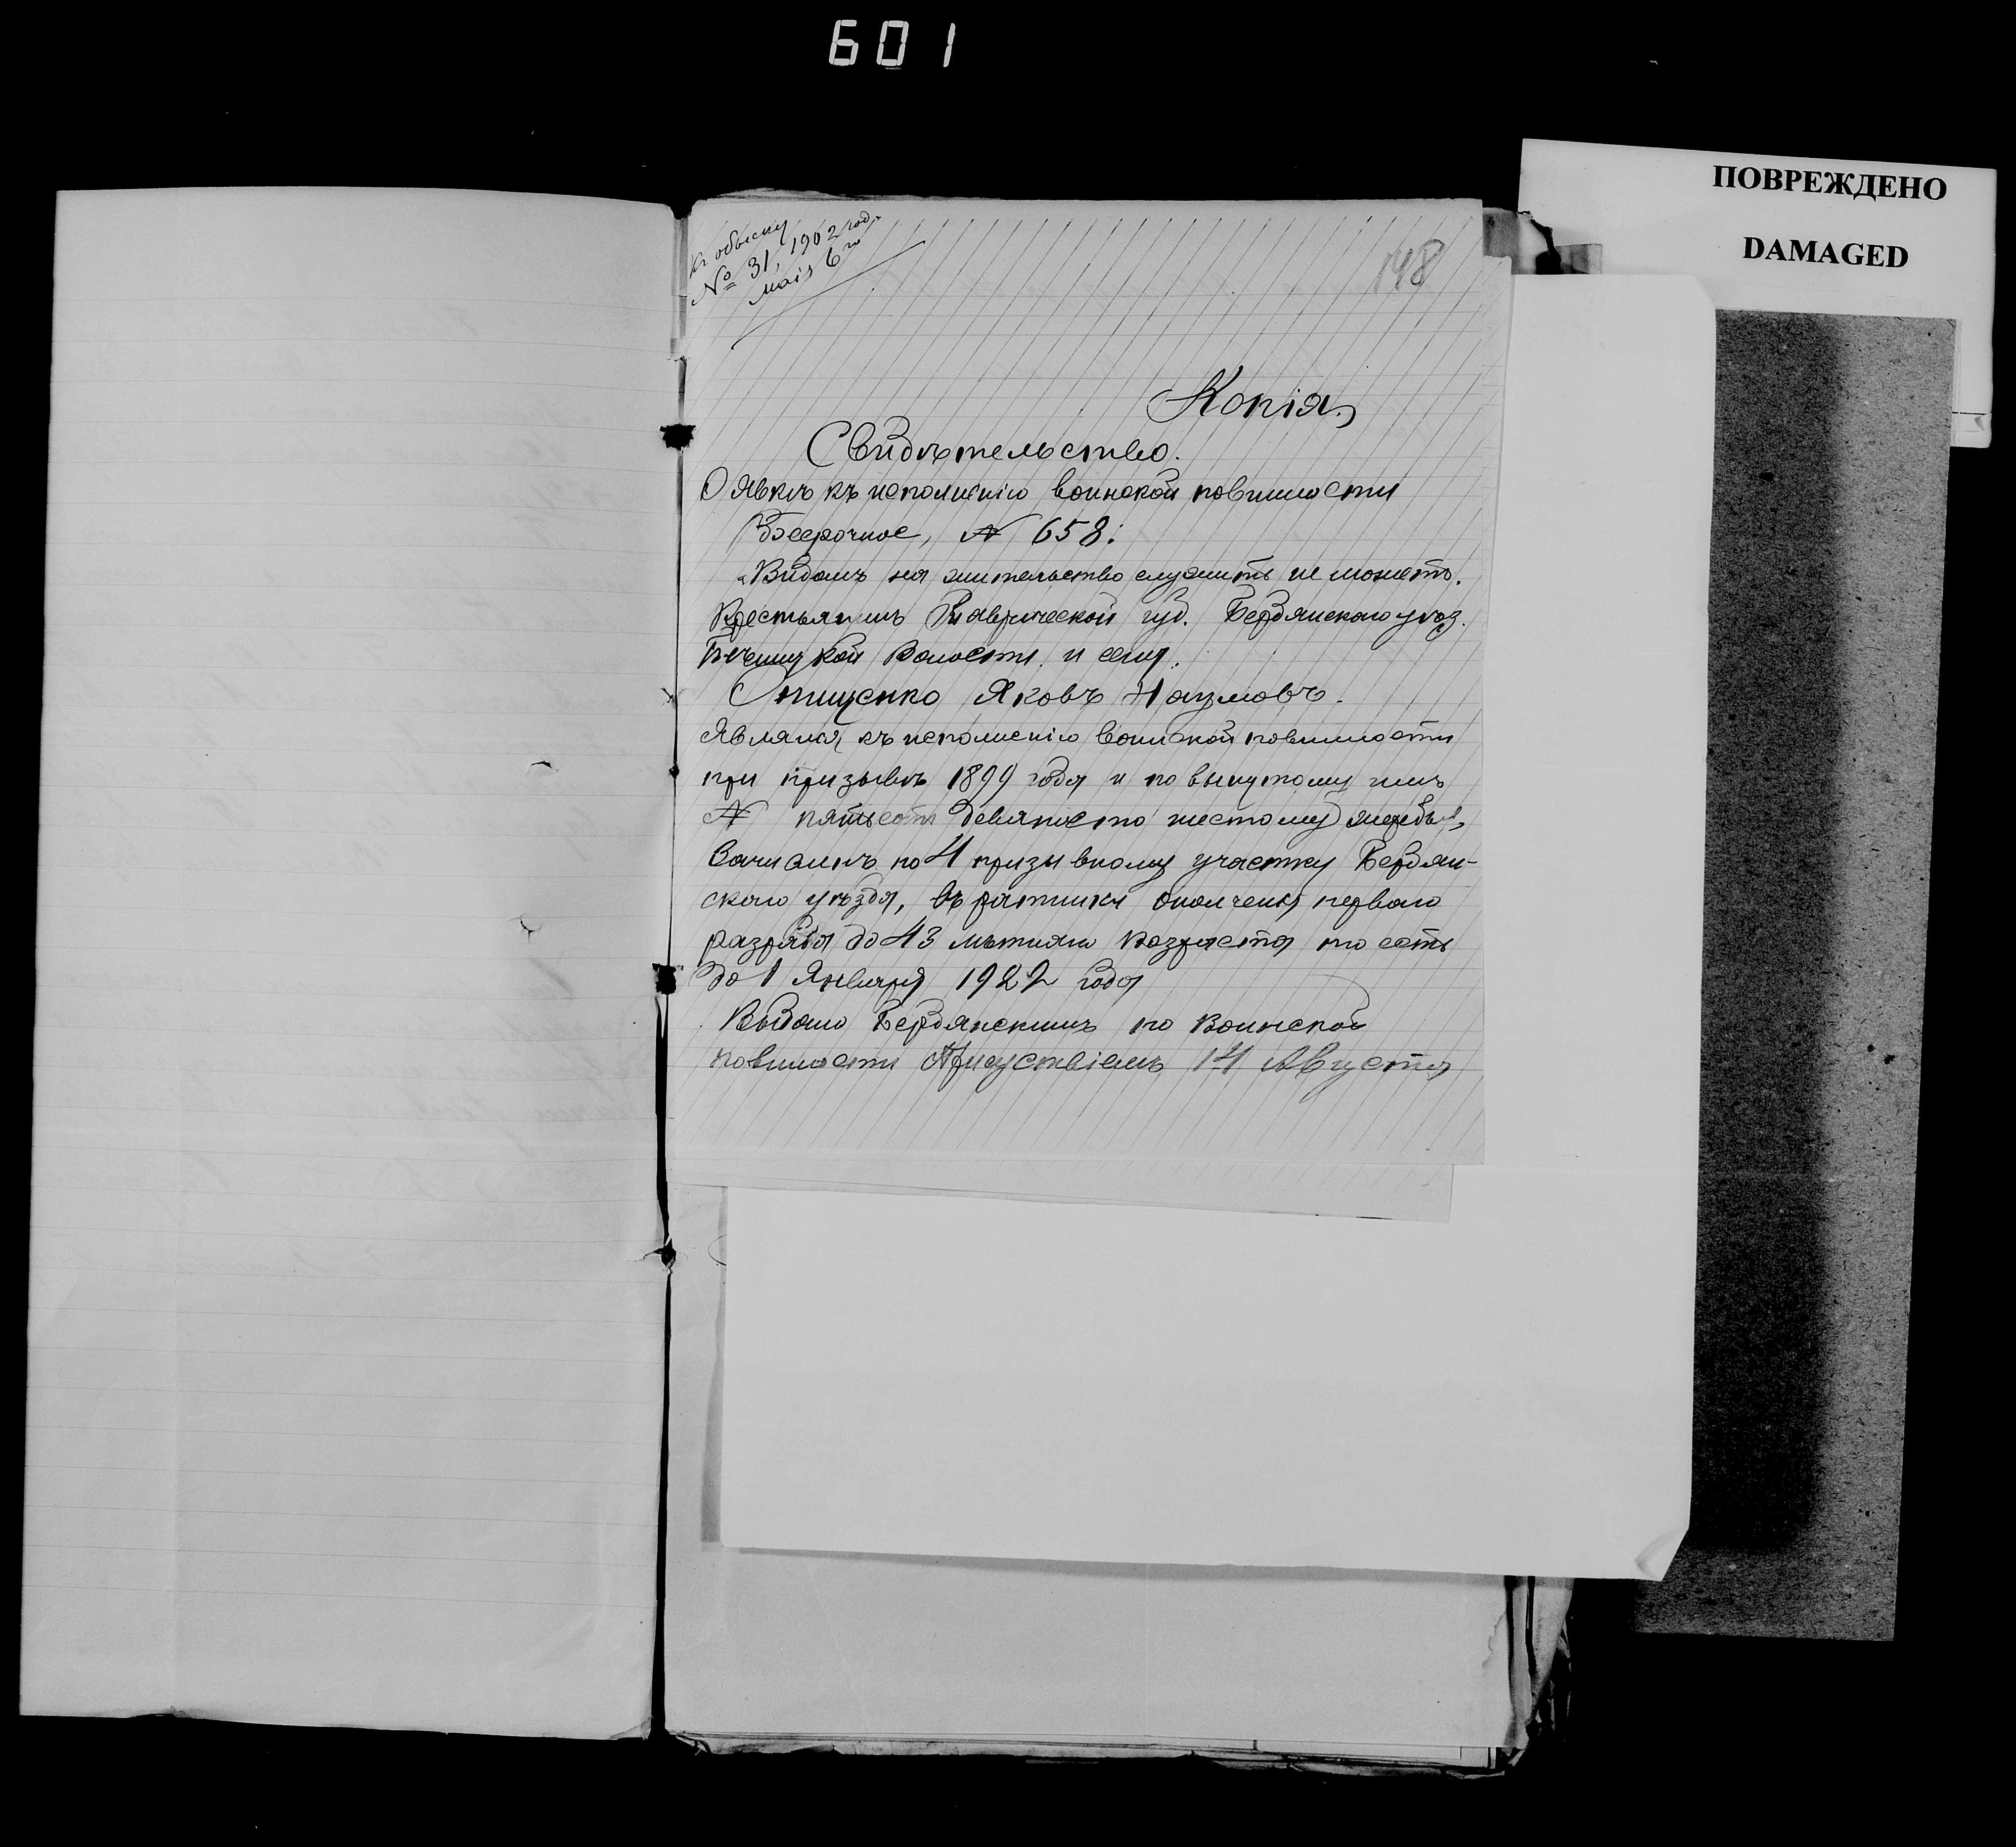 601
ПОВРЕЖДЕНО
DAMAGED
къ обыску
№ 31, 1902 года
мая 6го
148
Копія
Свидѣтельство.
О явкѣ къ исполненію воинской повинности
Безсрочное, № 658.
Видомъ на жительство служить не можетъ.
Крестьянинъ Таврической губ. Бердянскаго уѣз.
волости и села.
Онищенко Яковъ Наумовъ.
Являлся къ исполненію воинской повинности
при призывѣ 1899 года и по вынутому имъ
№ пятьсотъ девяносто шестому жеребью,
зачисленъ по 4 призывному участку Бердян-
скаго уѣзда, въ ратники ополченія перваго
разряда до 43 лѣтняго возраста то есть
до 1 Января 1922 года
Выдано Бердянскимъ по воинской
повинности Присутствіемъ 14 Августа